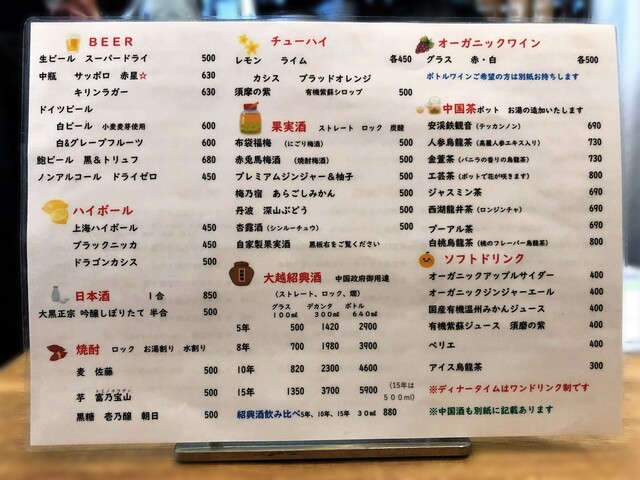 BEER
生ビール スーパードライ 500
中瓶 サッポロ 赤星☆ 630
キリンラガー 630
ドイツビール
白ビール 小麦麦芽使用 600
白&グレープフルーツ 600
鮑ビール 黒&トリュフ 680
ノンアルコール ドライゼロ 450
ハイボール
上海ハイボール 450
ブラックニッカ 450
ドラゴンカシス 500
日本酒 1合 850
大黒正宗 吟醸しぼりたて 半合 500
焼酎 ロック お湯割り 水割り
麦 佐藤 500
芋 富乃宝山 500
黒糖 壱乃醸 朝日 500
チューハイ
レモン ライム 各450
カシス ブラッドオレンジ
須摩の紫 有機紫蘇シロップ 500
果実酒 ストレート ロック 炭酸
布袋福梅 (にごり梅酒) 500
赤兎馬梅酒 (焼酎梅酒) 500
プレミアムジンジャー&柚子 500
梅乃宿 あらごしみかん 500
丹波 深山ぶどう 500
杏露酒(シンルーチュウ) 500
自家製果実酒 黒板右をご覧ください
大越紹興酒 中国政府御用達
(ストレート、ロック、燗)
グラス デカンタ ボトル
100㎖ 300㎖ 640㎖
5年 500 1420 2900
8年 700 1980 3900
10年 820 2300 4600
15年 1350 3700 5900 (15年は500㎖)
紹興酒飲み比べ5年、10年、15年 30㎖ 880
オーガニックワイン
グラス 赤・白 各500
ボトルワインご希望の方は別紙お持ちします
中国茶ポット お湯の追加いたします
安渓鉄観音(テッカンノン) 690
人参烏龍茶(高麗人参エキス入り) 730
金萱茶(バニラの香りの烏龍茶) 730
工芸茶(ポットで花が咲きます) 800
ジャスミン茶 690
西湖龍井茶(ロンジンチャ) 690
プーアル茶 690
白桃烏龍茶(桃のフレーバー烏龍茶) 800
ソフトドリンク
オーガニックアップルサイダー 400
オーガニックジンジャーエール 400
国産有機温州みかんジュース 400
有機紫蘇ジュース 須磨の紫 400
ペリエ 400
アイス烏龍茶 300
※ディナータイムはワンドリンク制です
※中国酒も別紙に記載あります